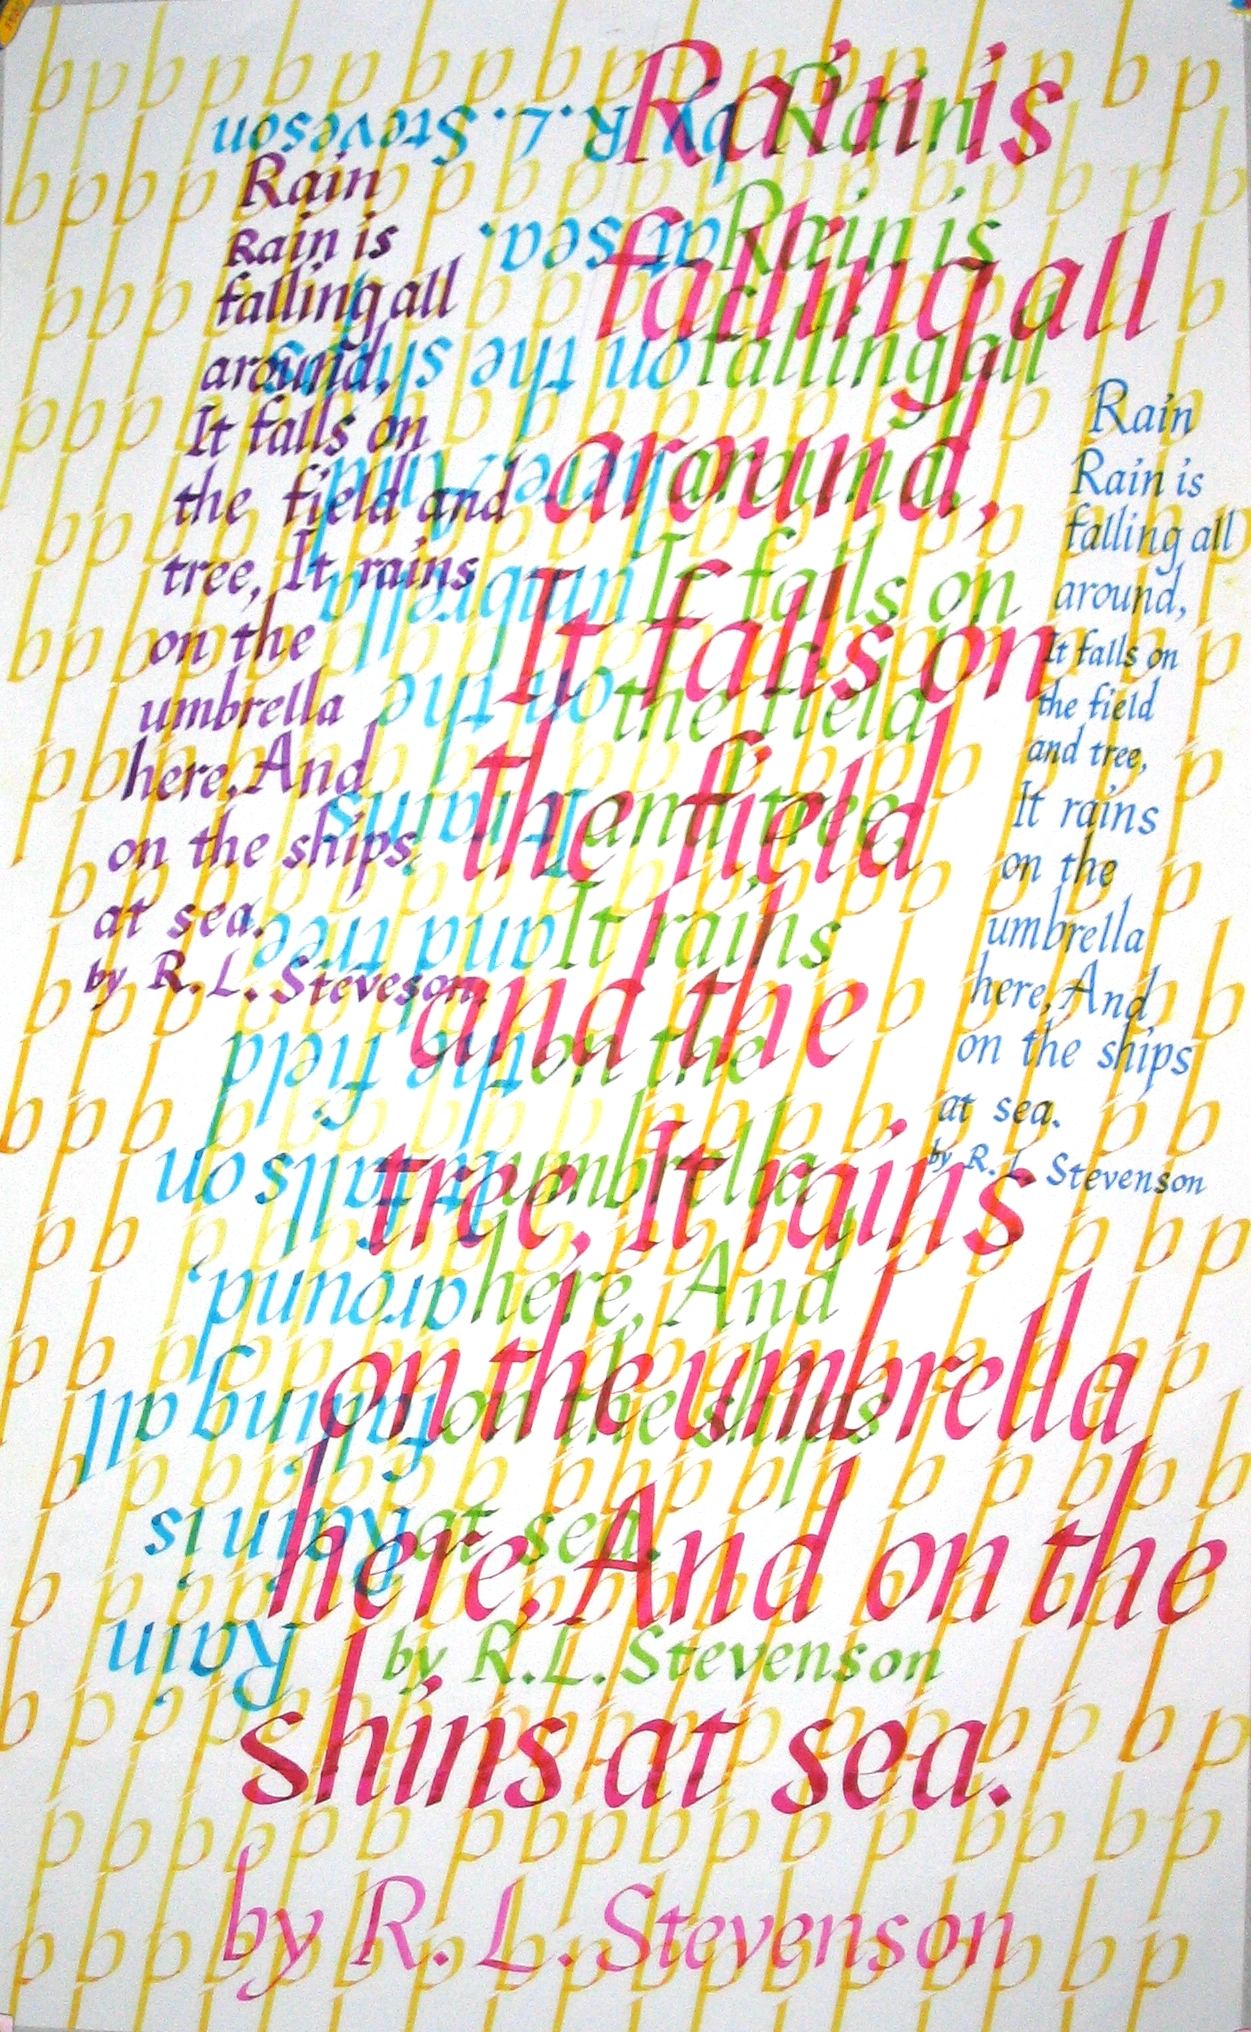 Rain is
falling all
around,
It falls on
the field
and the
tree, It rains
on the umbrella
here, And on the
ships at sea.
by R. L. Stevenson
Rain
Rain is
falling all
around,
It falls on
the field and
tree, It rains
on the
umbrella
here, And
on the ships
at sea.
by R. L. Steveson.
Rain
Rain is
falling all
around,
It falls on
the field
and tree,
It rains
on the
umbrella
here, And
on the ships
at sea.
by R. L. Stevenson
Rain
Rain is
falling all
around,
It falls on
the field
and tree
It rains
on the
umbrella
here, And
on the ships
at sea.
by R. L. Stevenson
Rain
Rain is
falling all
around,
It falls on
the field
and tree
It rains
on the
umbrella
here, And
on the ships
at sea.
by R. L. Steveson